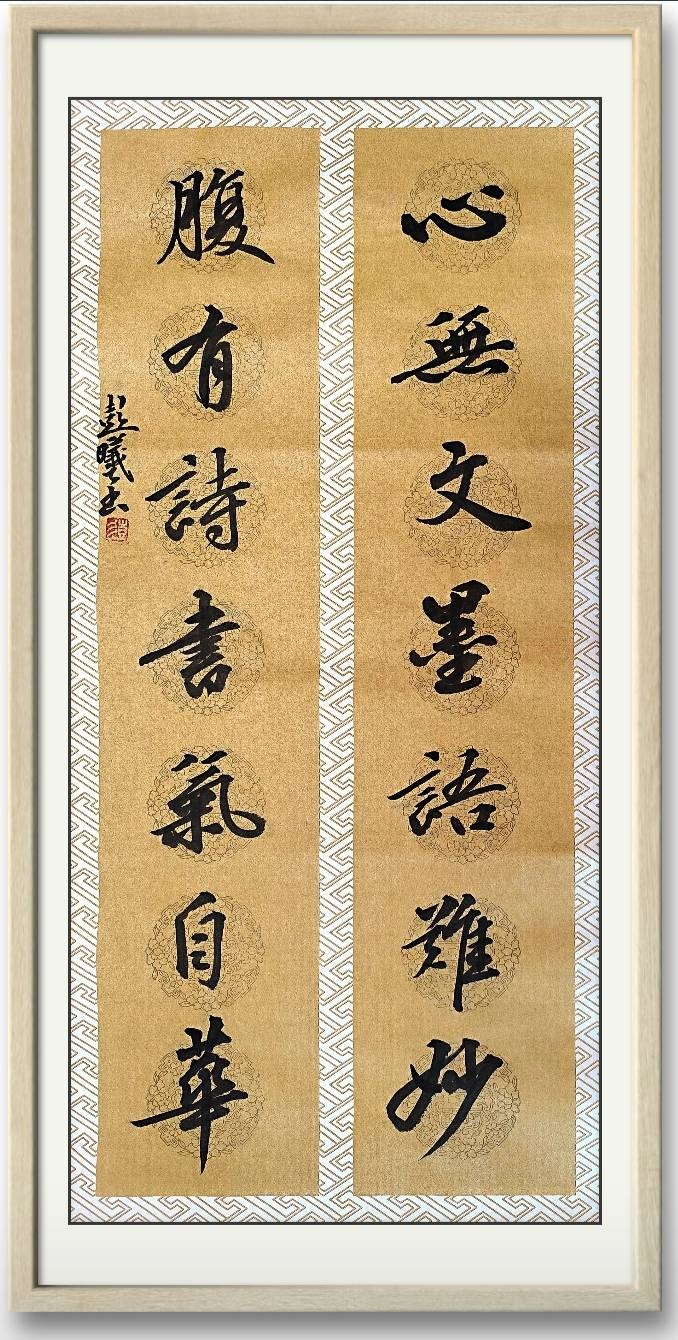 心無文墨語難妙
腹有詩書氣自華
彭曦书